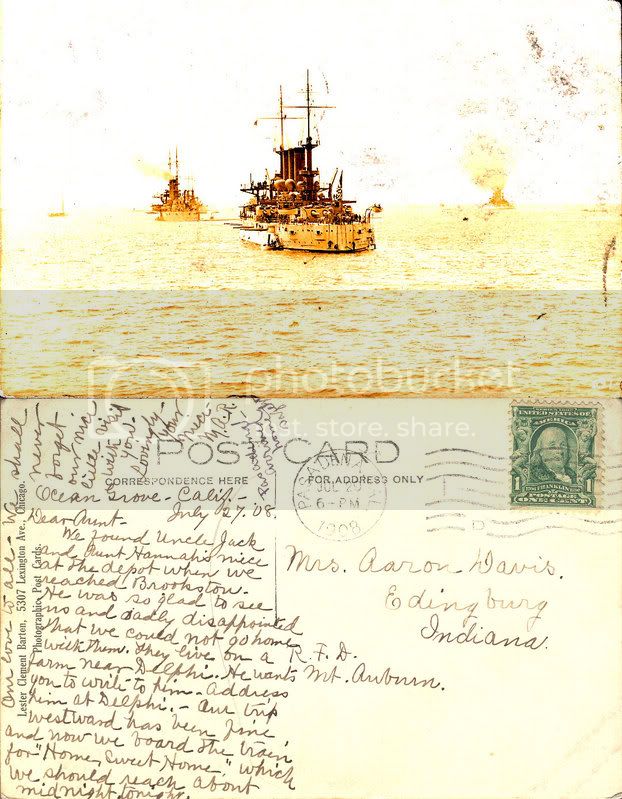 photobucket
Protect, store, share.
POST CARD
CORRESPONDENCE HERE
FOR ADDRESS ONLY
Ocean Grove - Calif. -
July 27. '08.
Dear Aunt-
We found Uncle Jack
and Aunt Hannah's niece
at the depot when we
reached Brookston.
He was so glad to see
us and sadly disappointed
that we could not go home
with them. They live on a
farm near Delphi. He wants
you to write to him - Address
him at Delphi. - Our trip
westward has been fine,
and now we board the train
for "Home Sweet Home," which
we should reach about
midnight tonight.
Our love to all - We shall
never
forget
our nice
little visit
with
you.
Lovingly-
Your
Niece-
Lester Clement Barton, 5307 Lexington Ave., Chicago.
Photographic Post Cards.
PASADENA
CAL.
JUL
6-PM
1908
SERIES 1902
UNITED STATES OF AMERICA
FRANKLIN
POSTAGE ONE CENT
1
1
Mrs. Aaron Davis.
Edingburg
Indiana.
R. F. D.
Mt. Auburn.